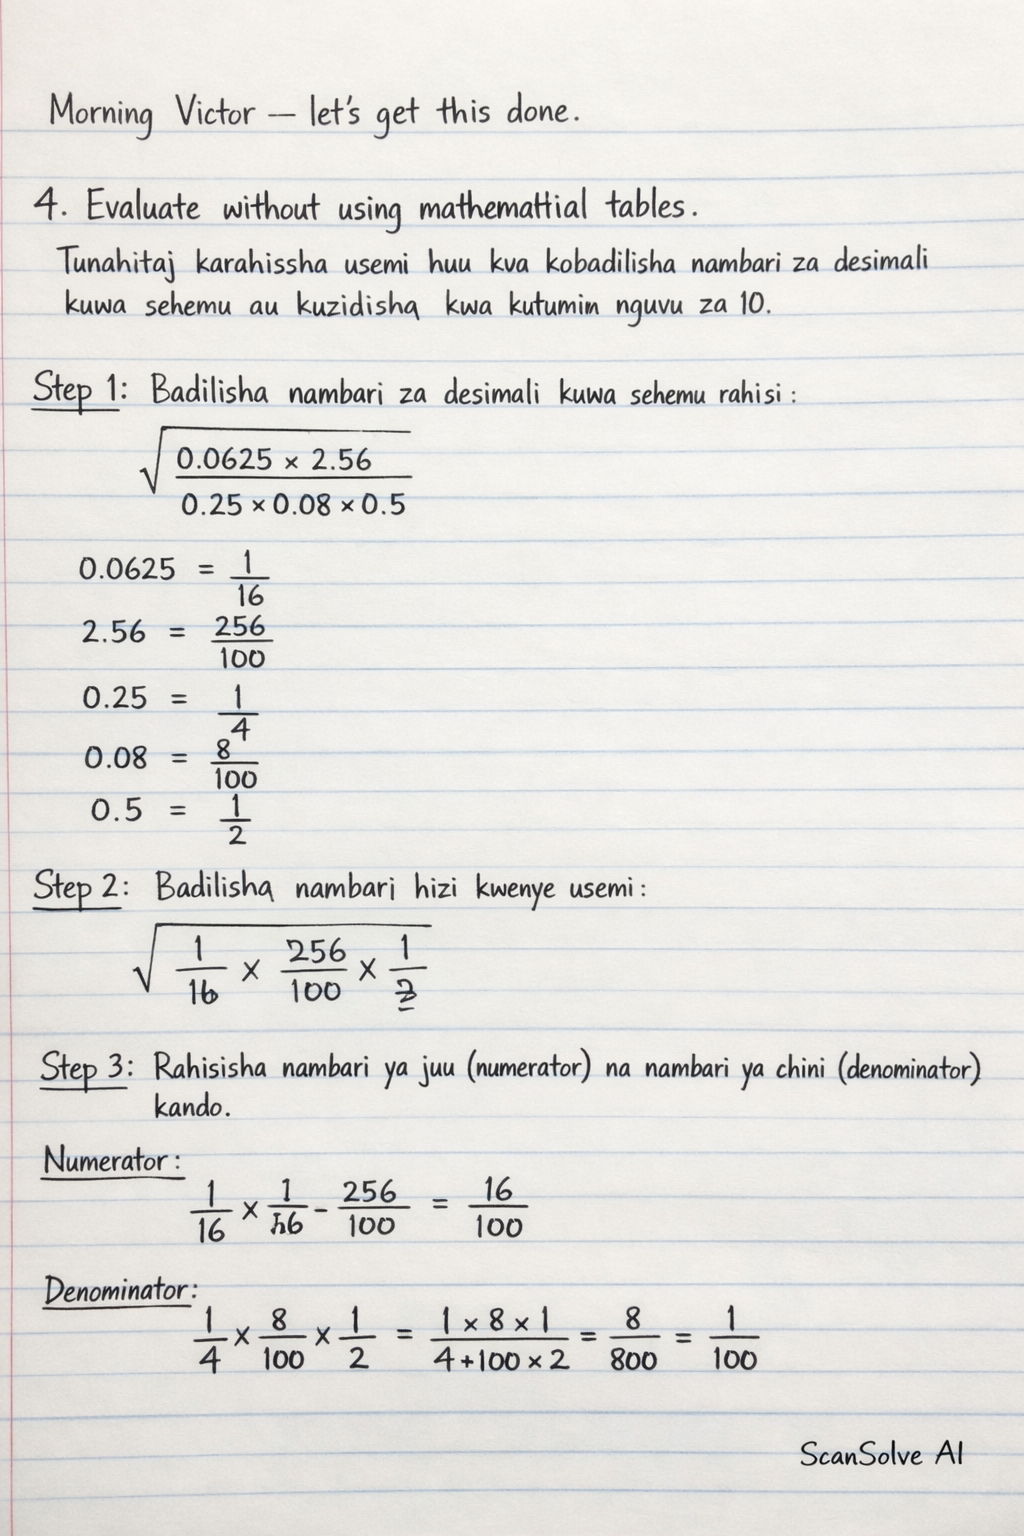 Morning Victor — let's get this done.
4. Evaluate without using mathemattial tables.
Tunahitaj karahissha usemi huu kva kobadilisha nambari za desimali
kuwa sehemu au kuzidisha kwa kutumin nguvu za 10.
Step 1: Badilisha nambari za desimali kuwa sehemu rahisi:
√(0.0625 × 2.56 / 0.25 × 0.08 × 0.5)
0.0625 = 1/16
2.56 = 256/100
0.25 = 1/4
0.08 = 8/100
0.5 = 1/2
Step 2: Badilisha nambari hizi kwenye usemi:
√(1/16 × 256/100 × 1/2)
Step 3: Rahisisha nambari ya juu (numerator) na nambari ya chini (denominator)
kando.
Numerator:
1/16 × 1/ - 256/100 = 16/100
Denominator:
1/4 × 8/100 × 1/2 = 1 × 8 × 1/4+100 × 2 = 8/800 = 1/100
ScanSolve AI